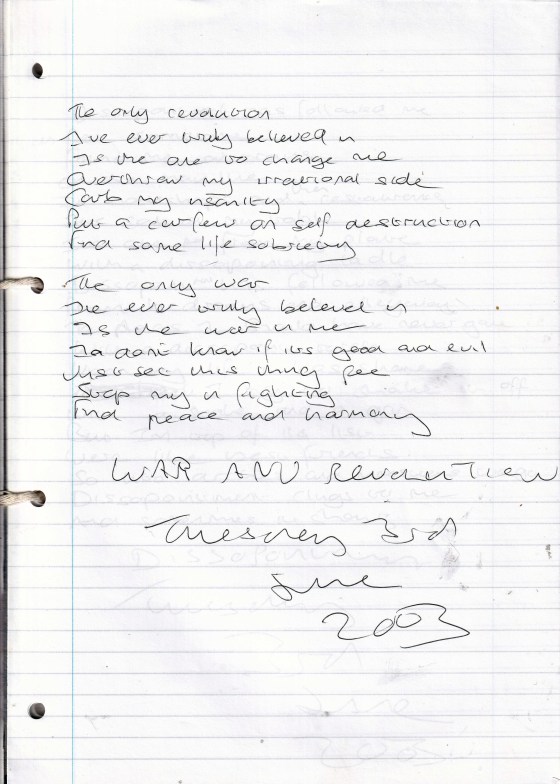 The only revolution
I've ever truly believed in
Is the one to change me
Overthrow my irrational side
Curb my insanity
Put a curfew on self destruction
Find some life sobriety
The only war
I've ever truly believed in
Is the war in me
I don't know if its good and evil
Just set this thing free
Stop my in fighting
Find peace and harmony
WAR AND REVOLUTION
Tuesday 3rd
June
2003